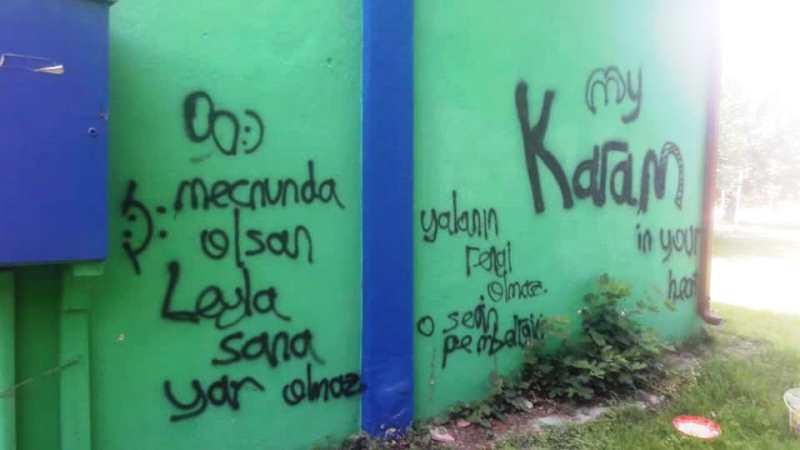 mecnunda
olsan
Leyla
sana
yar olmaz
yalanın
rengi
olmaz.
o senin
my
Karam
in your
heart